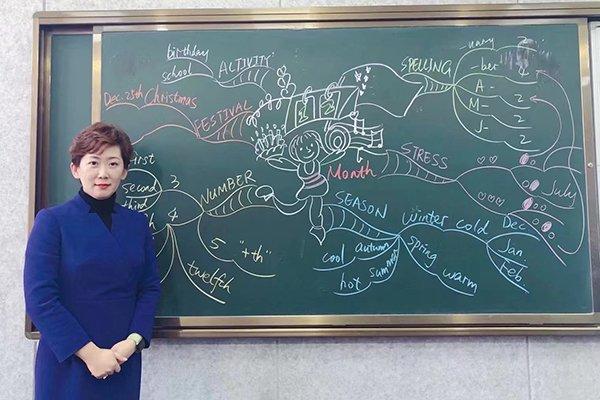 birthday
school
ACTIVITY
Dec. 25th Christmas
FESTIVAL
First
second 3
third
4
NUMBER
5 "+th"
twelfth
Month
SPELLING
-uary 2
-ber 4
A- 2
M- 2
J- 2
STRESS
July
SEASON
winter cold Dec
Jan
Feb
spring warm
cool autumn
hot summer